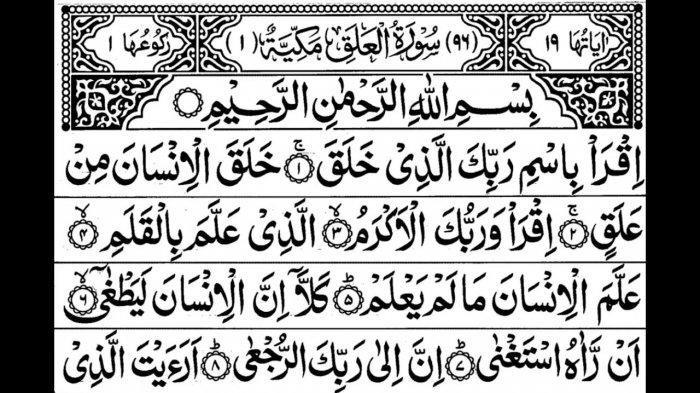 اٰیَاتُهَا ١٩ (٩٦) سُوْرَةُ الْعَلَقِ مَكِّيَّةٌ (١) رُكُوْعُهَا ١
بِسْمِ اللّٰهِ الرَّحْمٰنِ الرَّحِيْمِ
اِقْرَاْ بِاسْمِ رَبِّكَ الَّذِىْ خَلَقَ ۚ ١ خَلَقَ الْاِنْسَانَ مِنْ
عَلَقٍ ۚ ٢ اِقْرَاْ وَرَبُّكَ الْاَكْرَمُ ۙ ٣ الَّذِىْ عَلَّمَ بِالْقَلَمِ ۙ ٤
عَلَّمَ الْاِنْسَانَ مَا لَمْ يَعْلَمْ ؕ ٥ كَلَّاۤ اِنَّ الْاِنْسَانَ لَيَطْغٰٓى ۙ ٦
اَنْ رَّاٰهُ اسْتَغْنٰى ؕ ٧ اِنَّ اِلٰى رَبِّكَ الرُّجْعٰى ؕ ٨ اَرَءَيْتَ الَّذِىْ